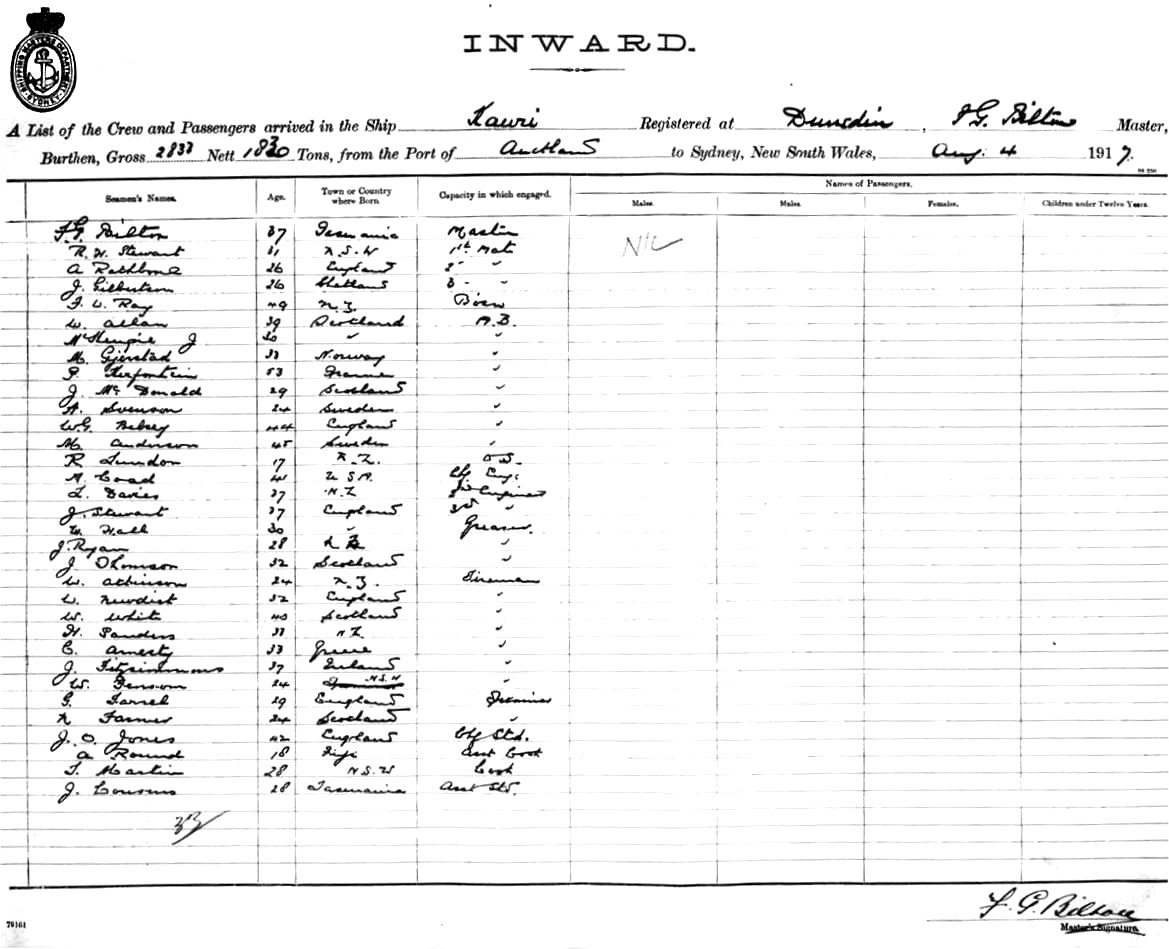 SHIPPING MASTER'S DEPARTMENT SYDNEY
INWARD.
A List of the Crew and Passengers arrived in the Ship Kauri Registered at Dunedin, F G. Bilton Master,
Burthen, Gross 2833 Nett 1830 Tons, from the Port of Auckland to Sydney, New South Wales, Aug. 4 1917.
Names of Passengers.
Seamen's Names. Age. Town or Country where Born. Capacity in which engaged. Males. Males. Females. Children under Twelve Years.
F.G. Bilton 37 Tasmania Master Nil
R. H. Stewart 31 N.S.W 1st Mate
A Rathbone 26 England 2 "
J. Gilbertson 26 Shetland 3 "
F. W. Ray 49 N.Z. Bosn
W. Allan 39 Scotland A.B.
J 30 " "
M. Gjerstad 33 Norway "
P. 53 France "
J. McDonald 29 Scotland "
A. Svenson 24 Sweden "
W.G. Belsey 44 England "
M. Anderson 45 Sweden "
R 17 N.Z. O.S.
N. Coad 41 U S A. Chf Eng.
L. Davies 37 N.Z 2nd Engineer
J. Stewart 37 England 3rd "
W. Hall 30 " Greaser.
J. Ryan 28 N Z "
J. Thomson 32 Scotland "
W. Atkinson 24 N.Z. Fireman
W. 32 England "
W. White 40 Scotland "
H. Sanders 33 N.Z. "
C. Amesty 33 Greece "
J. Fitzsimmons 37 Ireland "
W. 24 N.S.W "
G. Farrel 29 England Trimmer
N Farmer 24 Scotland "
J. O. Jones 42 England Chf Std.
A Round 18 Fiji Asst Cook
T. Martin 28 N.S.W Cook
J. Cousins 28 Tasmania Asst Std.
33
F. G. Bilton
Master's Signature.
79164